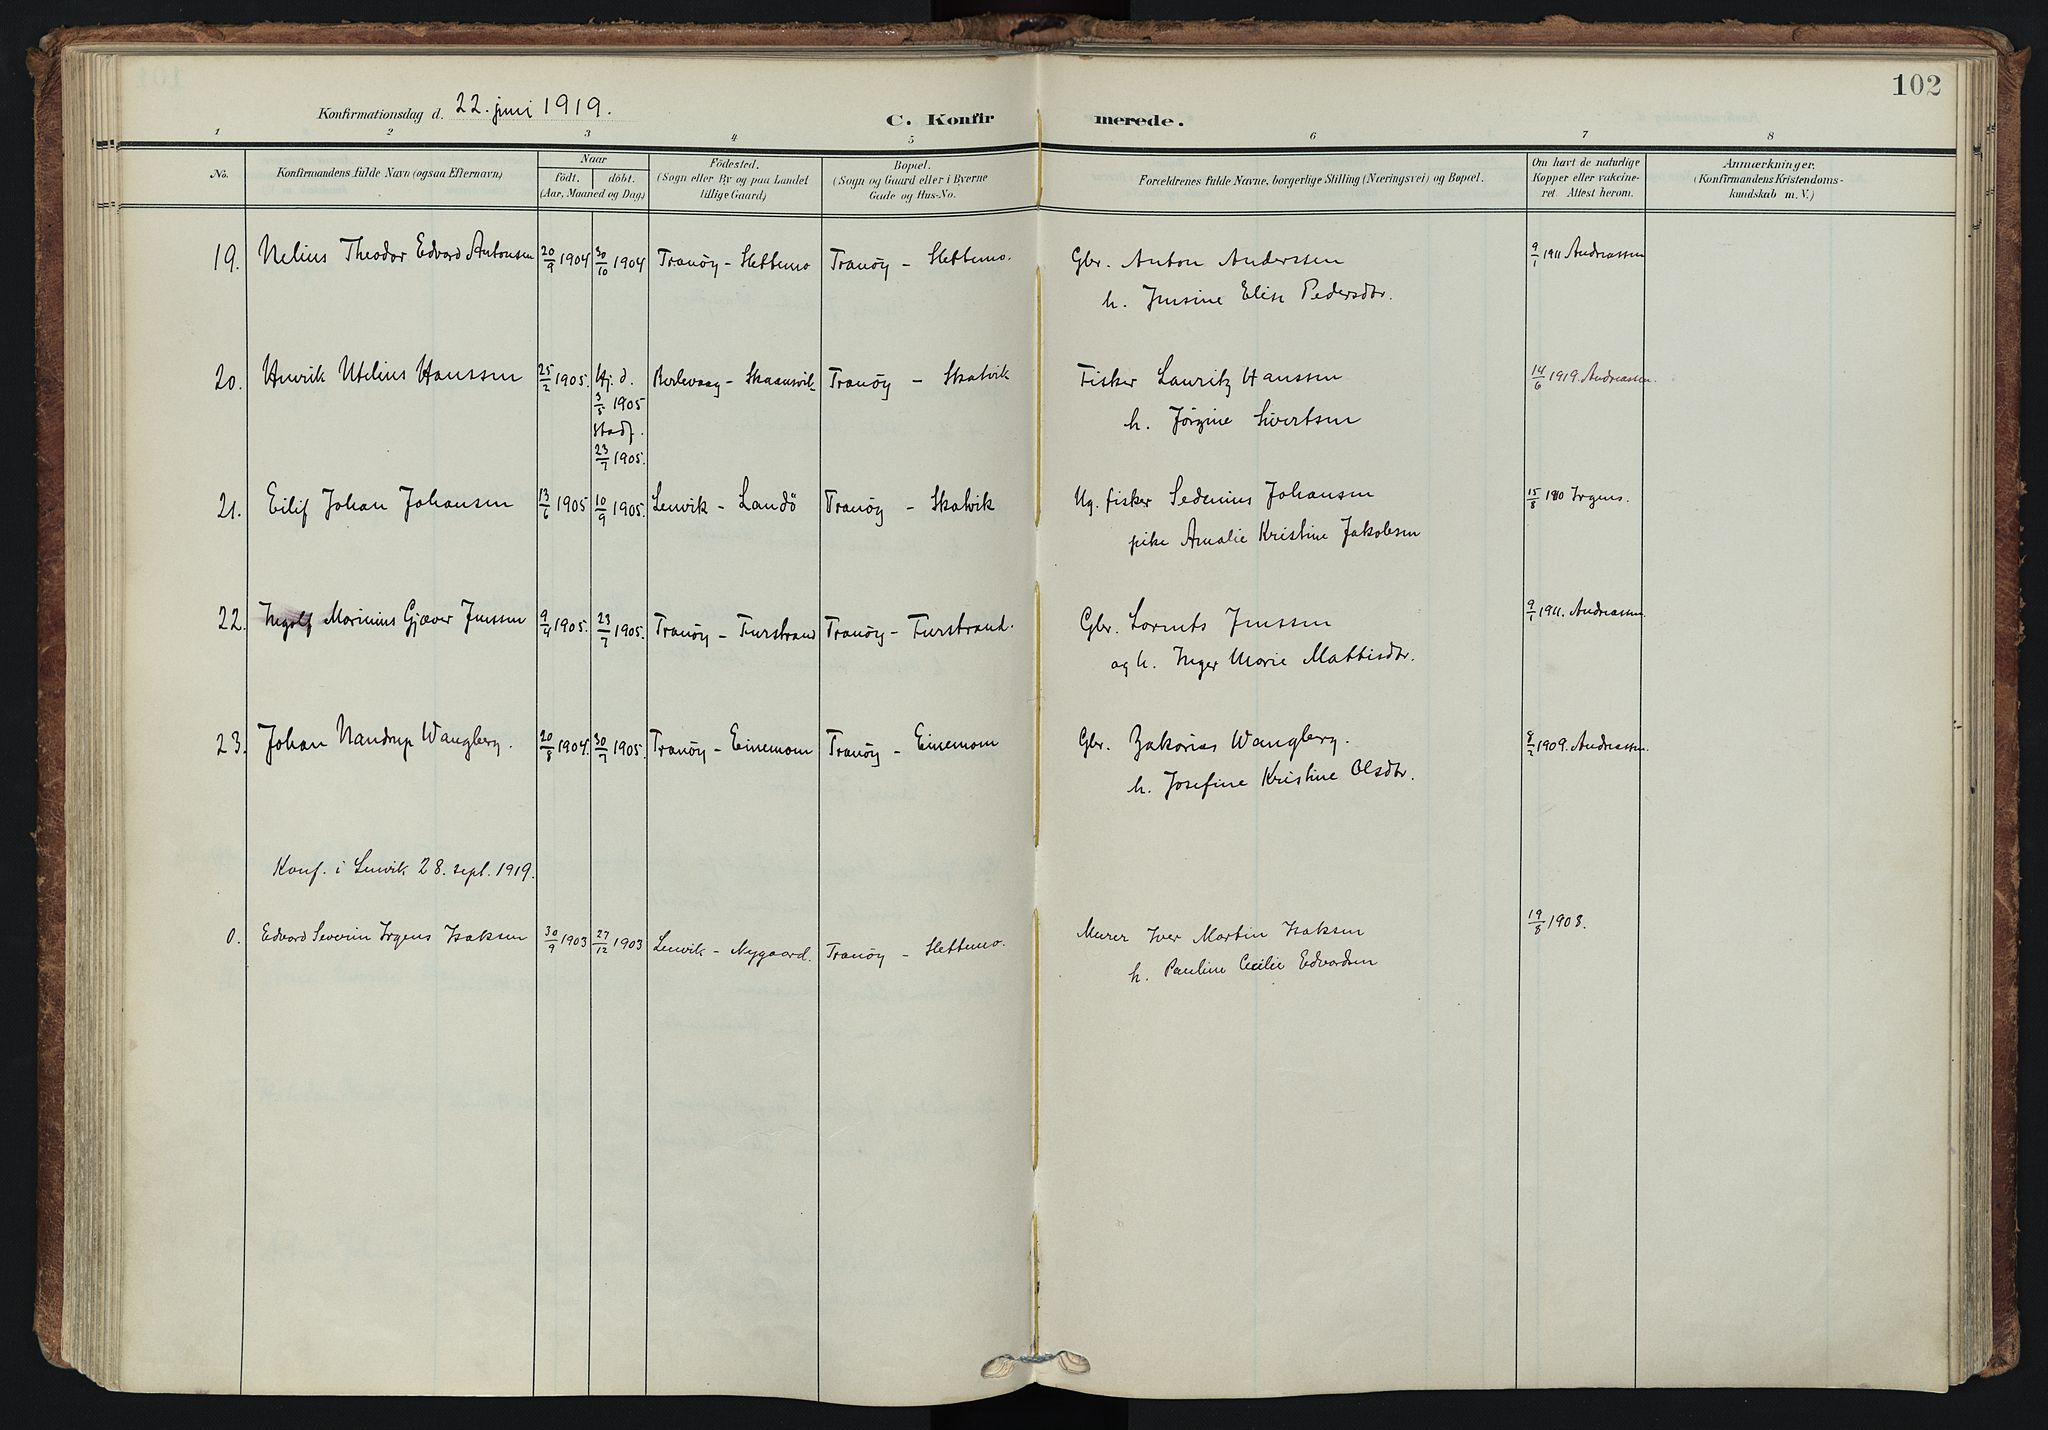 102
Konfirmationsdag d. 22. juni 1919.
C. Konfirmerede.
1 2 3 4 5 6 7 8
No.
Konfirmandens fulde Navn (ogsaa Efternavn).
Naar
födt. döbt.
(Aar, Maaned og Dag)
Födested.
(Sogn eller By og paa Landet
tillige Gaard)
Bopæl.
(Sogn og Gaard eller i Byerne
Gade og Hus-No.
Forældrenes fulde Navne, borgerlige Stilling (Næringsvei) og Bopæl.
Om havt de naturlige
Kopper eller vakcine-
ret. Attest herom.
Anmærkninger.
(Konfirmandens Kristendoms-
kundskab m. V.)
19. Nelius Theodor Edvard Antonsen 20/9 1904 30/10 1904 Tranöy - Slettemo Tranöy - Slettemo. Gbr. Anton Anderssen 9/1 1911 Andreassen
h. Jensine Elise Pedersdtr.
20. Henrik Utelius Hanssen 25/2 1905. Hj. d. Berlevaag - Skaansvik Tranöy - Skatvik Fisker Lauritz Hanssen 14/6 1919. Andreassen.
3/5 1905
h. Jørgine Sivertsen
Stadf.
23/7 1905.
21. Eilif Johan Johansen 13/6 1905 10/9 1905. Lenvik - Landö Tranöy - Skatvik Ug. fisker Sedenius Johansen 15/8 1910 Irgens.
pike Amalie Kristine Jakobsen
22. Ingolf Marinius Gjæver Jenssen 9/4 1905. 23/7 1905. Tranöy - Furstrand Tranöy - Furstrand. Gbr. Lorents Jenssen 9/1 1911. Andreassen
og h. Inger Marie Mattisdtr.
23. Johan Nandrup Wangberg. 20/8 1904. 30/7 1905. Tranöy - Einemom Tranöy - Einemom Gbr. Zakarias Wangberg. 8/2 1909. Andreassen.
h. Josefine Kristine Olsdtr.
Konf. i Lenvik 28. sept. 1919.
0. Edvard Severin Irgens Isaksen 30/9 1903 27/12 1903 Lenvik - Nygaard. Tranöy - Slettemo. Murer Iver Martin Isaksen 19/8 1908.
h. Pauline Cecilie Edvardsen